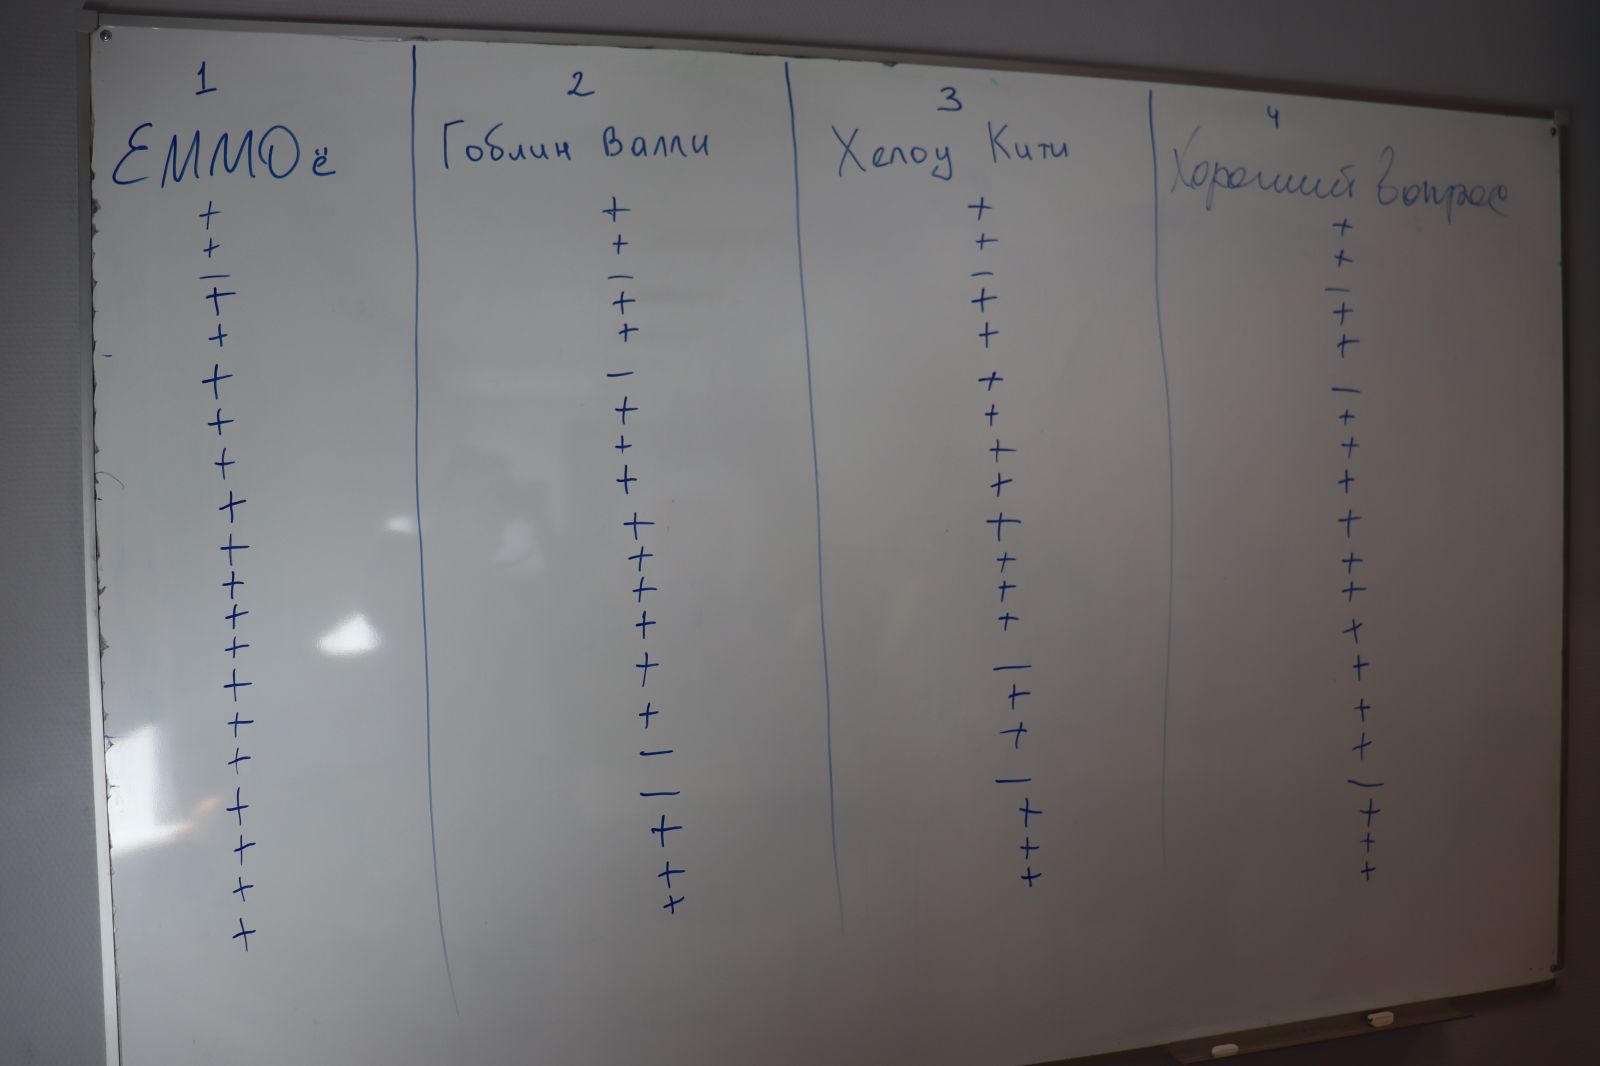 1
ЕММОё
+
+
−
+
+
+
+
+
+
+
+
+
+
+
+
+
+
+
+
+
2
Гоблин Валли
+
+
−
+
+
−
+
+
+
+
+
+
+
+
+
−
−
+
+
+
3
Хелоу Кити
+
+
−
+
+
+
+
+
+
+
+
+
+
−
+
+
−
+
+
+
4
Хороший Вопрос
+
+
−
+
+
−
+
+
+
+
+
+
+
+
+
+
−
+
+
+